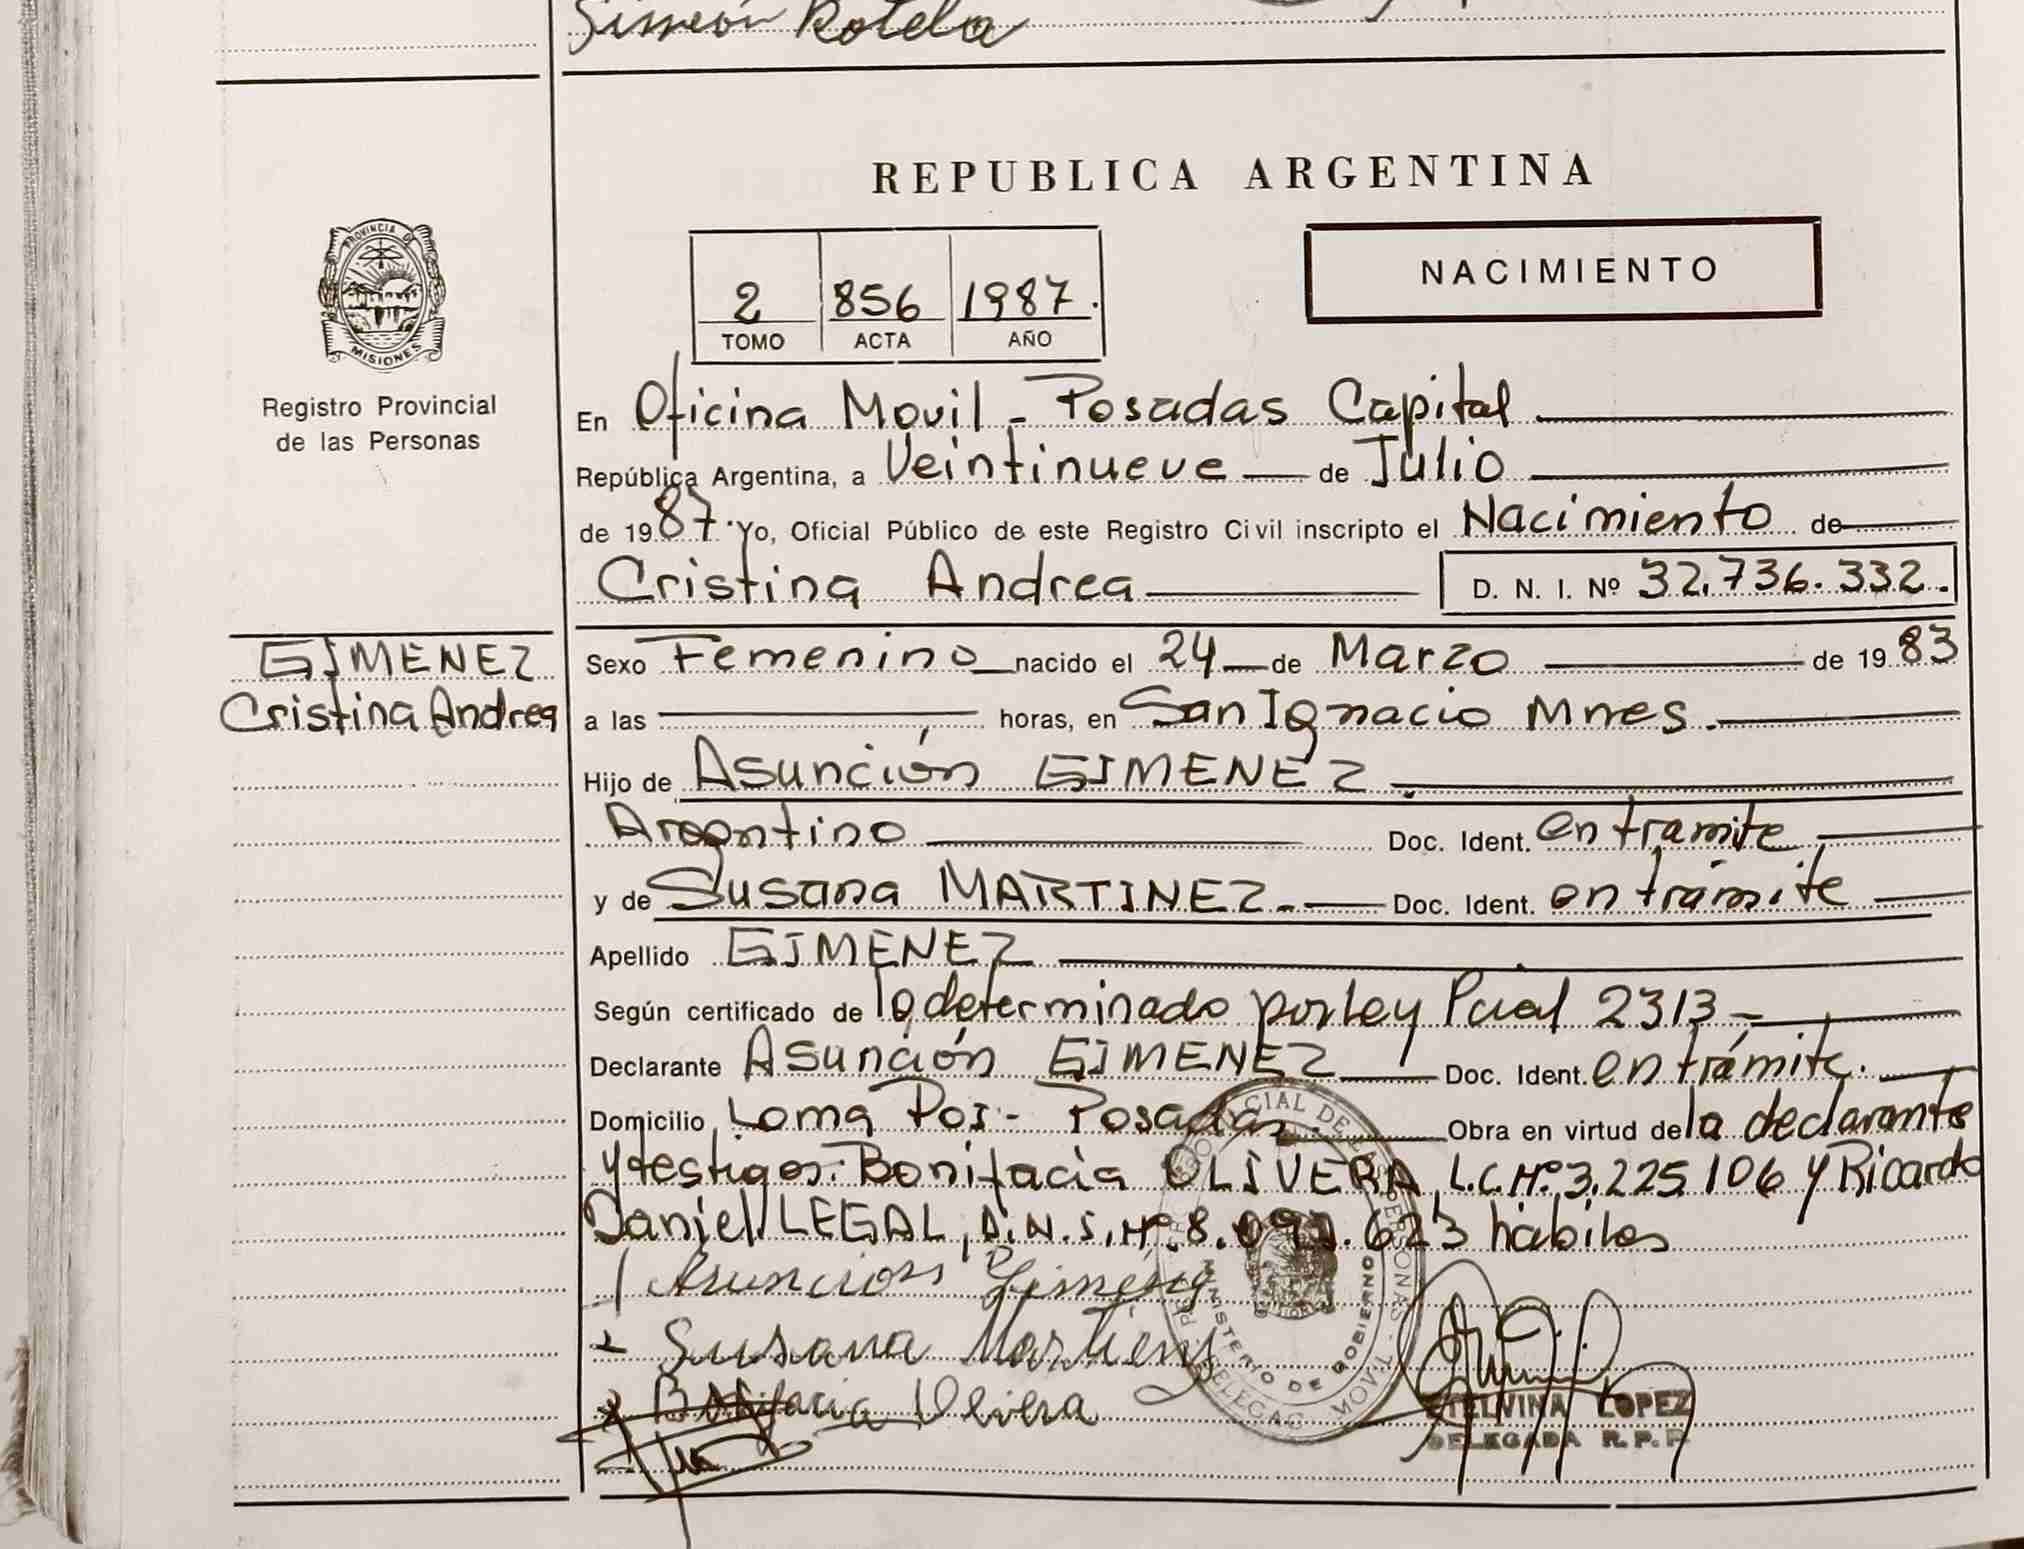 Simeón Rotela
REPUBLICA ARGENTINA
PROVINCIA D
MISIONES
Registro Provincial
de las Personas
2 856 1987.
TOMO ACTA AÑO
NACIMIENTO
En Oficina Movil - Posadas Capital
República Argentina, a Veintinueve de Julio
de 1987. Yo, Oficial Público de este Registro Civil inscripto el Nacimiento de
Cristina Andrea D. N. I. Nº 32.736.332.
GIMENEZ
Cristina Andrea
Sexo Femenino nacido el 24 de Marzo de 1983
a las horas, en San Ignacio Mnes.
Hijo de Asunción GIMENEZ
Argentino Doc. Ident. en tramite
y de Susana MARTINEZ.- Doc. Ident. en trámite
Apellido GIMENEZ
Según certificado de lo determinado por Ley Pcial 2313-
Declarante Asunción GIMENEZ Doc. Ident. en trámite.
Domicilio Loma Poi - Posadas. Obra en virtud de la declarante
y testigos: Bonifacia OLIVERA, L.C.Nº.3.225.106 y Ricardo
Daniel LEGAL, D.N.I.Nº.8.091.623 hábiles
Asuncion Gimenez
Susana Martienz
Bonifacia Olivera
MINISTERIO DE GOBIERNO
ETELVINA LOPEZ
DELEGADA R. P. P.